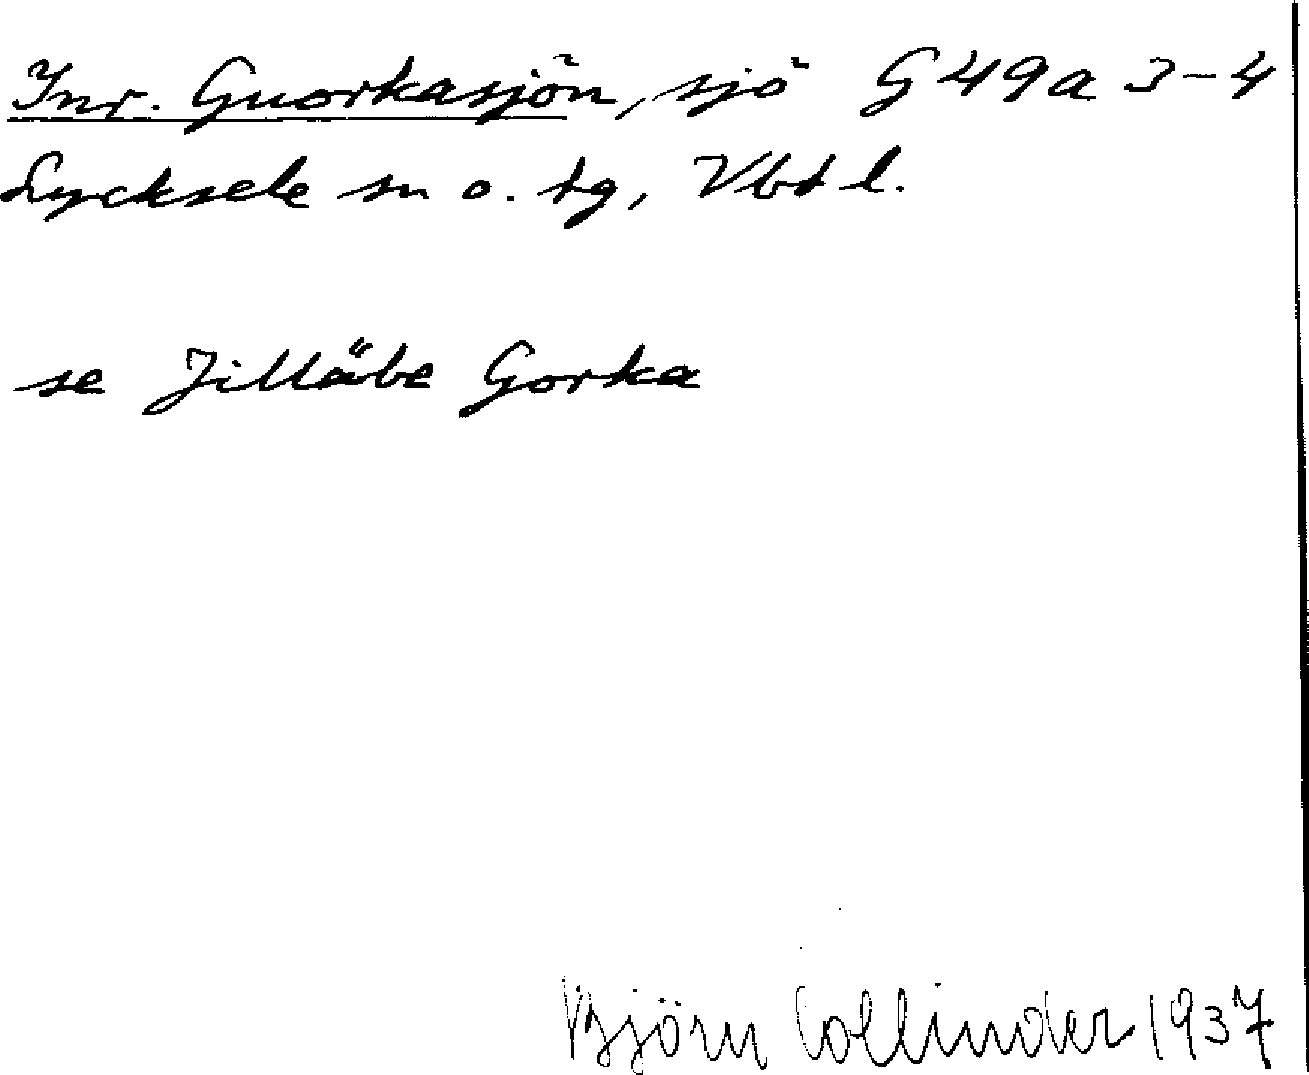 Inr. Guorkasjön, sjö G 49a 3-4
Lycksele sn o. tg, Vbt l.
se Jilläbe Gorka
Björn Collinder 1937